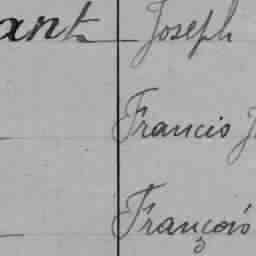 ant Joseph
Francis J
François